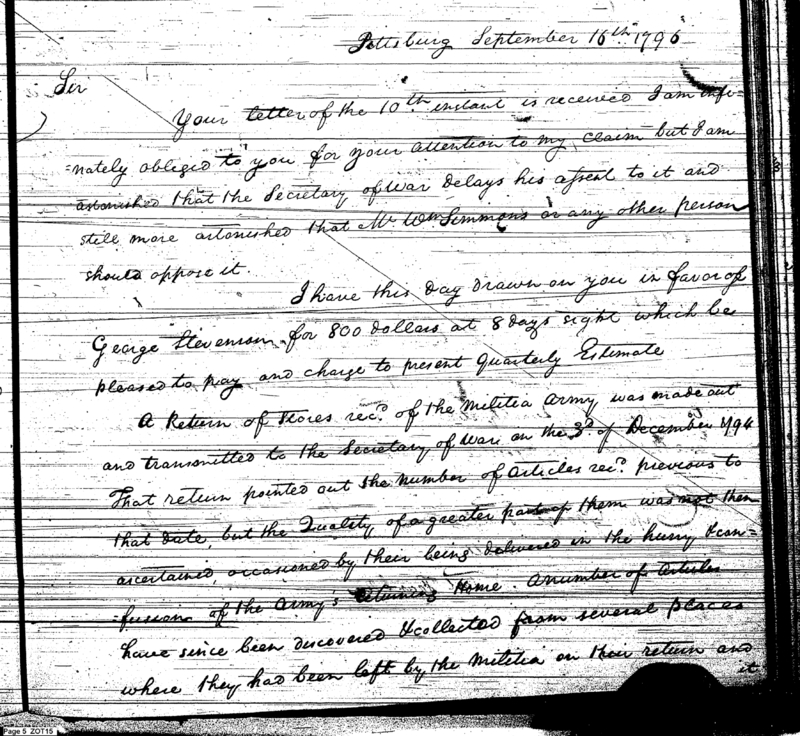 Pittsburg September 16th 1796
Sir
Your letter of the 10th instant is received I am infi-
=nately obliged to you for your attention to my claim but I am
astonished that the Secretary of War delays his assent to it and
still more astonished that Mr Wm Simmons or any other person
should oppose it.
I have this day drawn on you in favor of
George Stevenson for 800 dollars at 8 days sight which be
pleased to pay and charge to present Quarterly Estimate
A Return of Stores recd. of the Militia Army was made out
and transmitted to the Secretary of War on the 3d. of December 1794
That return pointed out the number of articles recd. previous to
that date, but the Quality of a greater part of them was not then
ascertained, occasioned by their being delivered in the hurry & con=
=fusion of the Army's returning Home. A number of Articles
have since been discovered & collected from several places
where they had been left by the Militia on their return and
it
Page 5 ZOT15